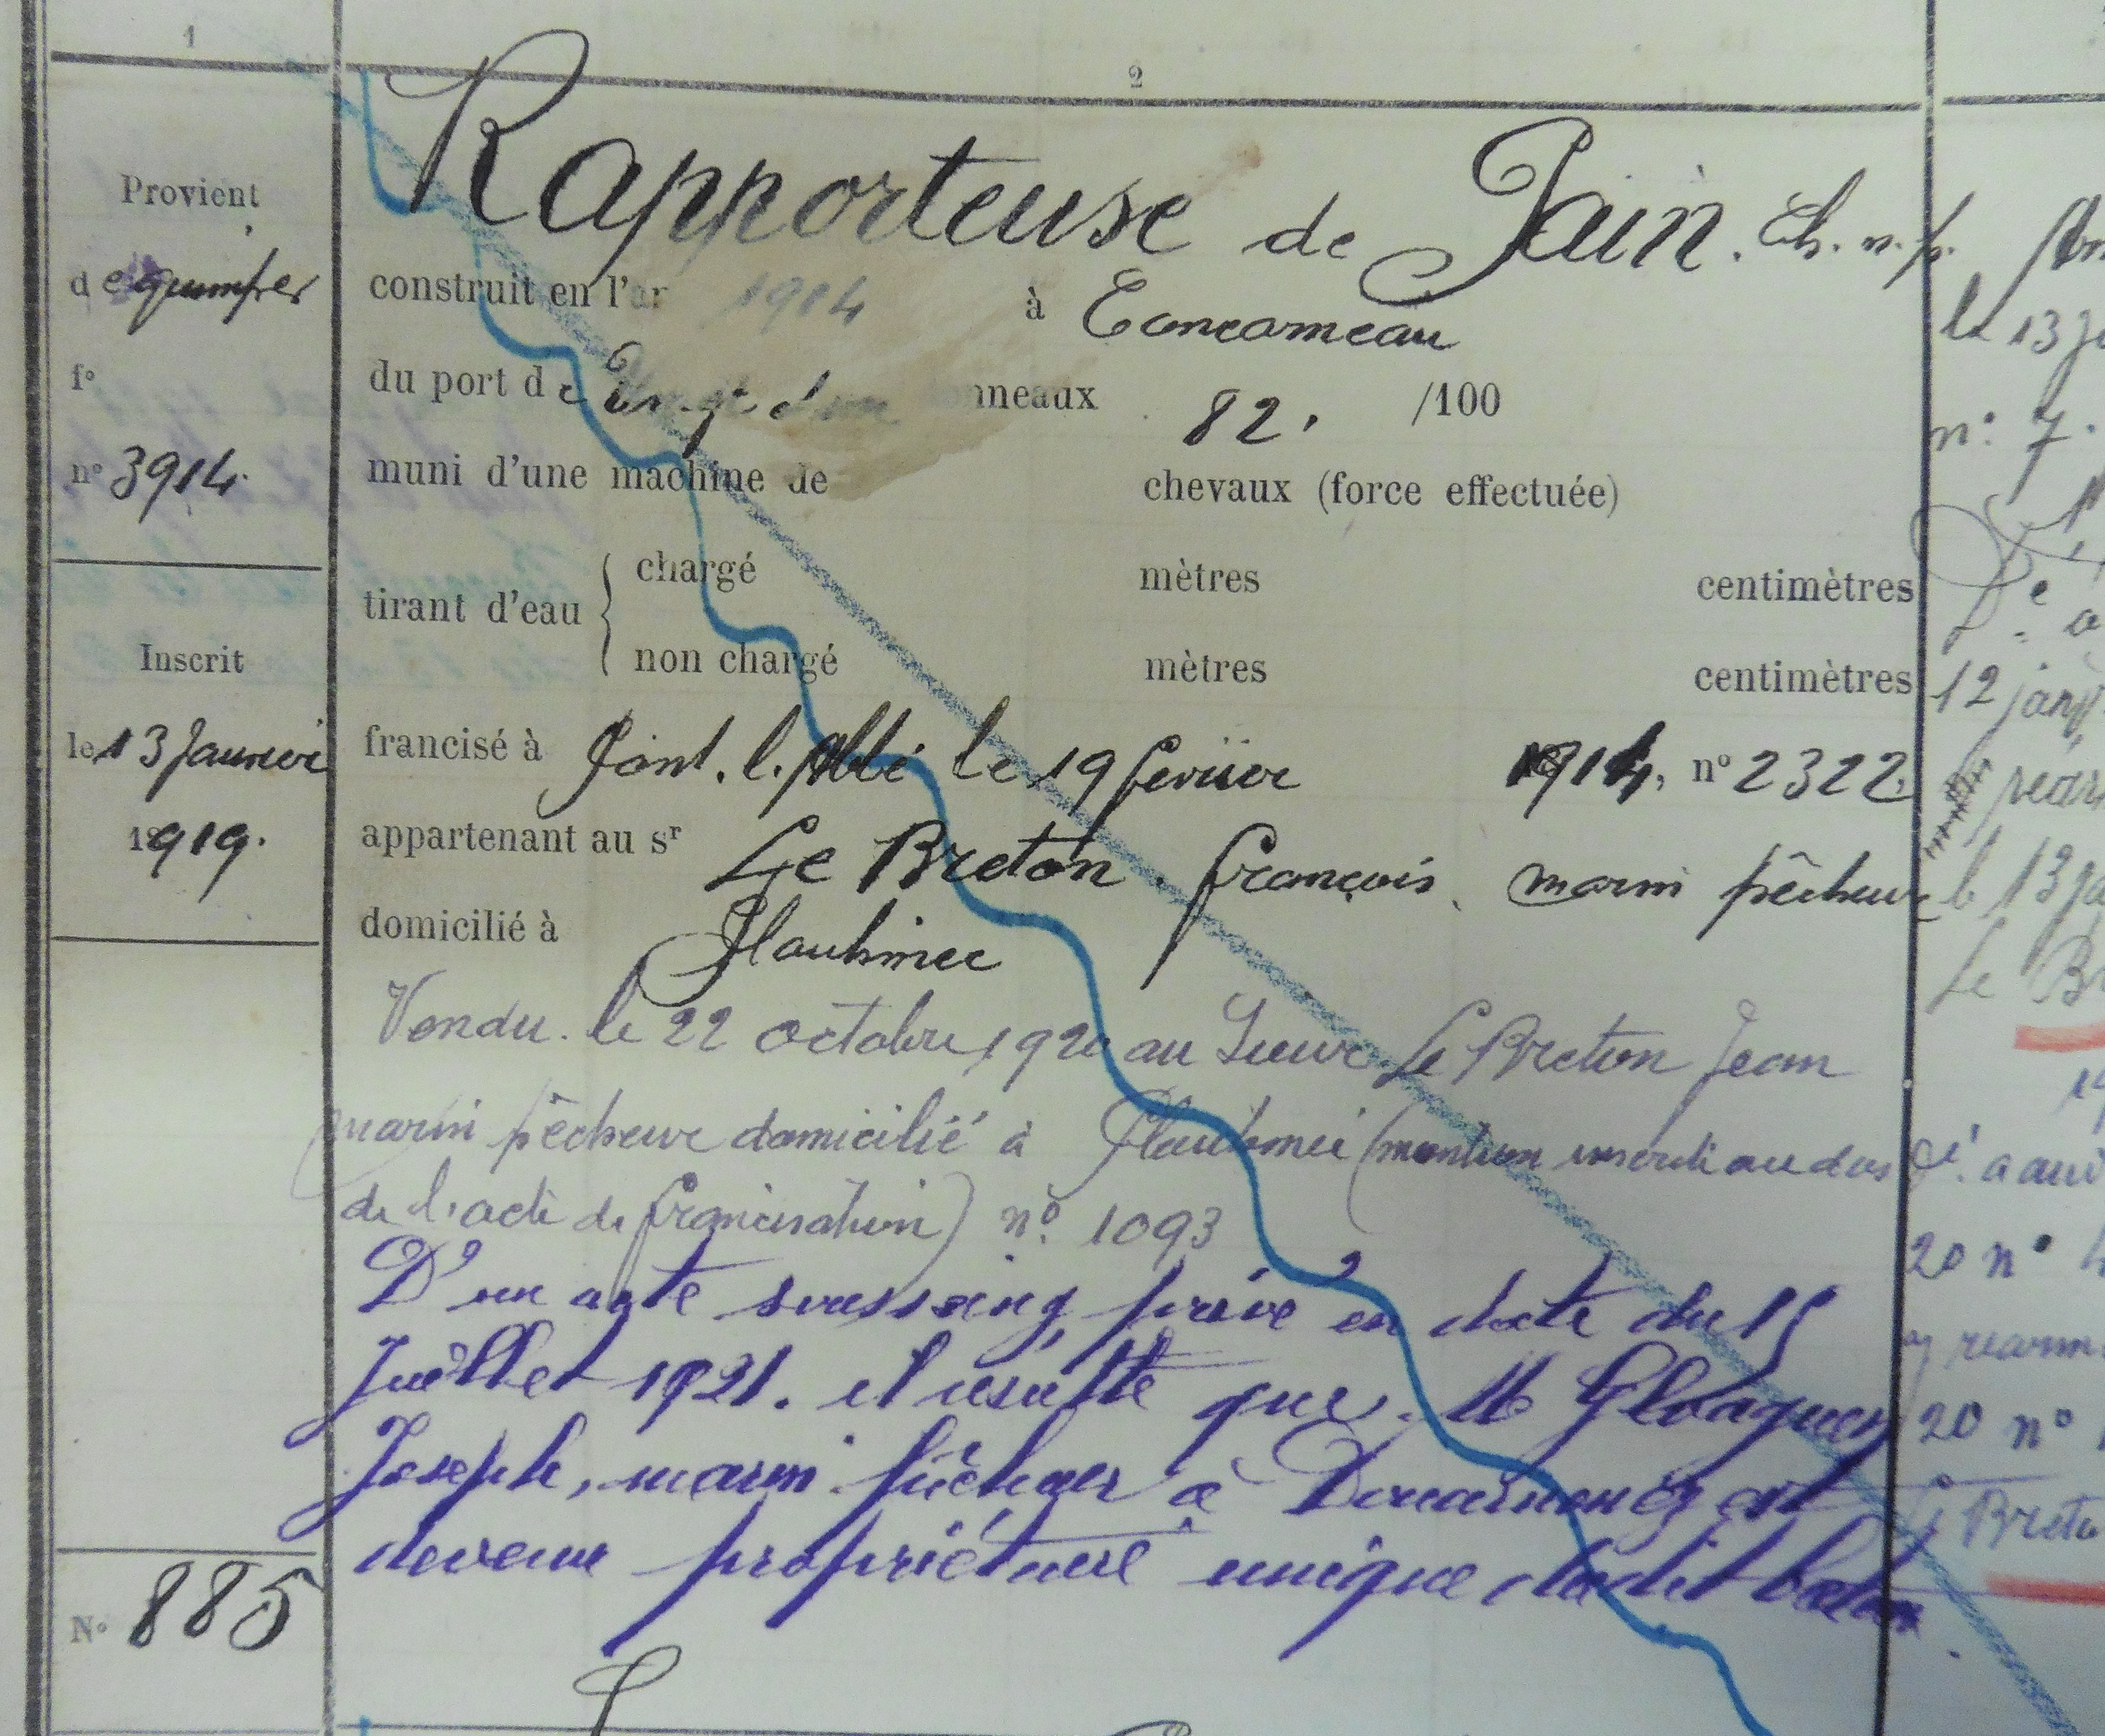 1
2
Provient
de quimper
f°
n° 3914.
Inscrit
le 13 Janvier
1919.
N° 885
Rapporteuse de Pain. Ch. n. p.
construit en l'an 1914 à Concarneau
du port de Vingt d'un tonneaux 82. /100
muni d'une machine de chevaux (force effectuée)
tirant d'eau { chargé mètres centimètres
non chargé mètres centimètres
francisé à Pont. l. Abbé le 19 février 1914, n° 2322.
appartenant au sr Le Breton. François, marin pêcheur
domicilié à Plauhinec
Vendu. le 22 octobre 1920 au Sieur Le Breton Jean
marin pêcheur domicilié à Plauhinec (mention inscrite au dos
de l'acte de francisation) n° 1093
D'un acte soussaing privé en date du 15
Juillet 1921. il résulte que. M Gloaguen
Joseph, marin pêcheur à Douarnenez est
devenu propriétaire unique dudit bateau.
le 13 Ja
n: 7.
De a
12 janv
réarm
le 13 Ja
Le Br
19
20 n°
réarm
20 n°
Le Breto